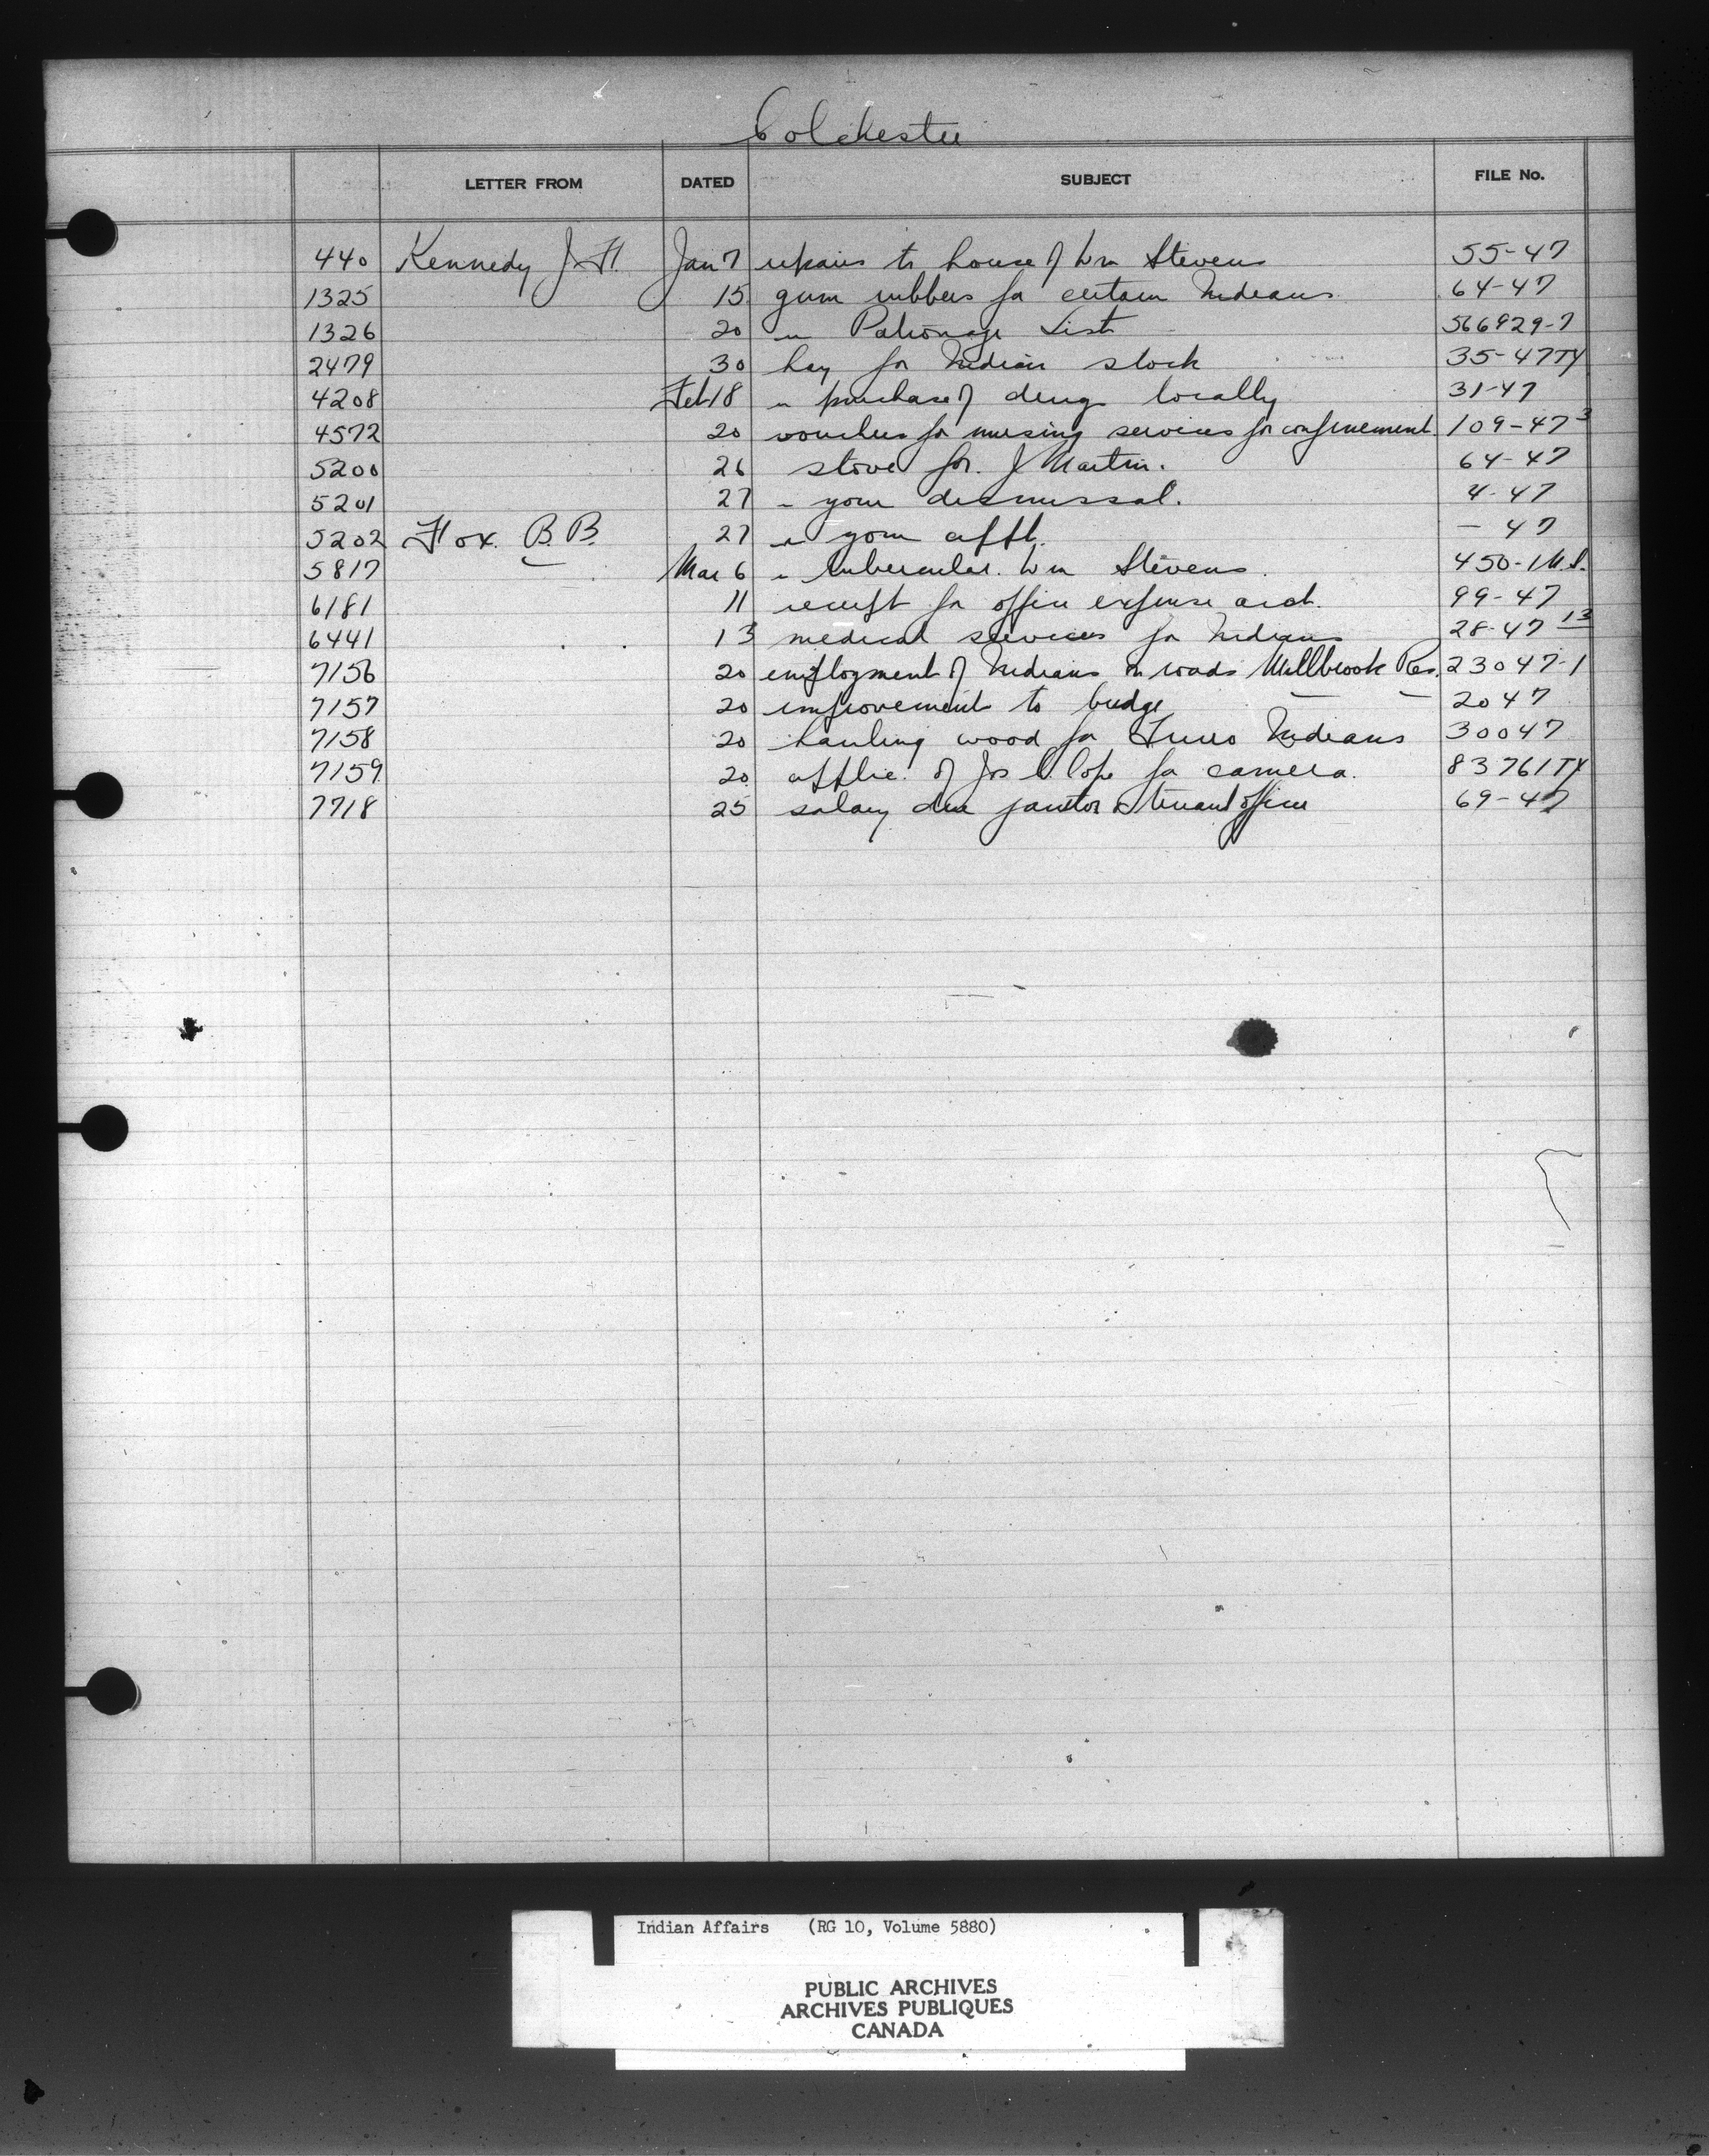 Colchester
LETTER FROM DATED SUBJECT FILE No.
440 Kennedy J. H. Jan 7 repairs to house of Wm Stevens 55-47
1325 15 gum rubbers for certain Indians 64-47
1326 20 " Patronage List 566929-7
2479 30 hay for Indian stock 35-47TY
4208 Feb 18 " purchase of drugs locally 31-47
4572 20 vouchers for nursing services for confinement 109-47 3
5200 26 stove for J Martin. 64-47
5201 27 " your dismissal. 4-47
5202 Fox. B. B. 27 " your appt. - 47
5817 Mar 6 " tubercular Wm Stevens. 450-1
6181 11 receipt for office expense acct. 99-47
6441 13 medical services for Indians 28-47 13
7156 20 employment of Indians on roads Millbrook Res. 23047-1
7157 20 improvement to bridge — — 2047
7158 20 hauling wood for Truro Indians 30047
7159 20 applic. of Jos C. Cope for camera. 83761TY
7718 25 salary due janitor & truant officer 69-47
Indian Affairs (RG 10, Volume 5880)
PUBLIC ARCHIVES
ARCHIVES PUBLIQUES
CANADA